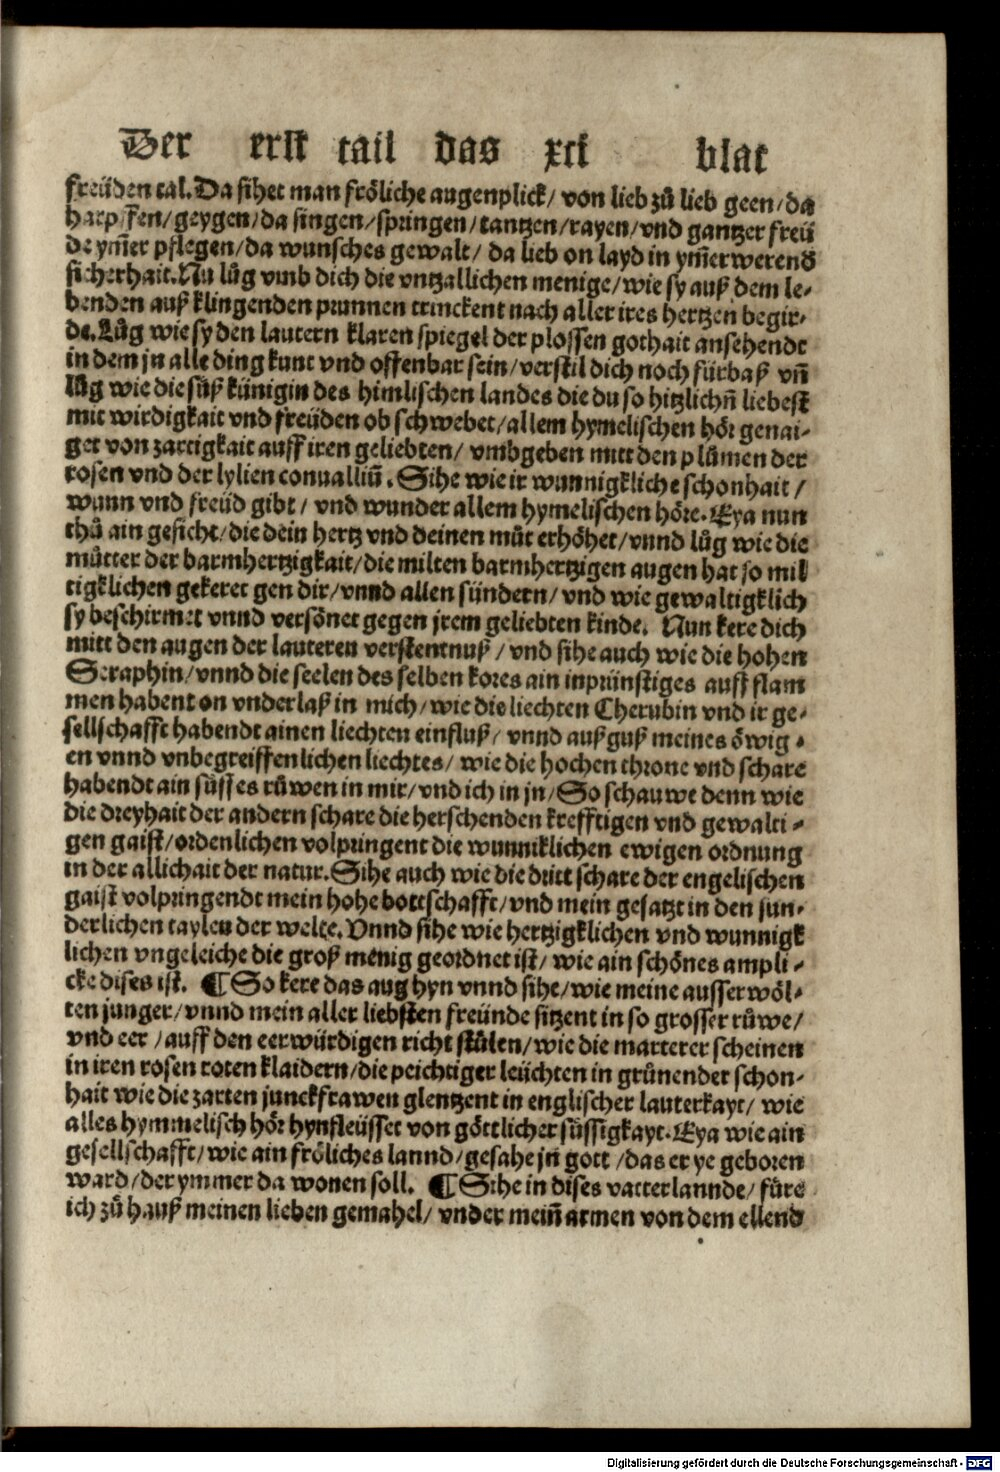 Der erst tail das xci blat
freüden tal. Da sihet man fröliche augenplick / von lieb zů lieb geen / da
harpffen / geygen / da singen / springen / tantzen / rayen / vnd gantzer freü
de ym̃er pflegen / da wunsches gewalt / da lieb on layd in ym̃erwerend
sicherhait. Nu lůg vmb dich die vntzallichen menige / wie sy auß dem le⸗
benden auß klingenden prunnen trinckent nach aller ires hertzen begir⸗
de. Lůg wie sy den lautern klaren spiegel der plossen gothait ansehendt
in dem jn alle ding kunt vnd offenbar sein / verstil dich noch fürbaß vñ
lůg wie die süß künigin des himlischen landes die du so hitzlichñ liebest
mit wirdigkait vnd freüden ob schwebet / allem hymelischen hör genai⸗
get von zartigkait auff iren geliebten / vmbgeben mitt den plůmen der
rosen vnd der lylien conualliũ. Sihe wie ir wunnigkliche schonhait /
wunn vnd freüd gibt / vnd wunder allem hymelischen höre. Eya nun
thů ain gesicht / die dein hertz vnd deinen můt erhöhet / vnnd lůg wie die
můtter der barmhertzigkait / die milten barmhertzigen augen hat so mil
tigklichen gekeret gen dir / vnnd allen sündern / vnd wie gewaltigklich
sy beschirmet vnnd versönet gegen jrem geliebten kinde. Nun kere dich
mitt den augen der lauteren verstentnuß / vnd sihe auch wie die hohen
Seraphin / vnnd die seelen des selben kores ain inprünstiges auff flam
men habent on vnderlaß in mich / wie die liechten Cherubin vnd ir ge⸗
sellschafft habendt ainen liechten einfluß / vnnd außguß meines öwig⸗
en vnnd vnbegreiffenlichen liechtes / wie die hochen throne vnd schare
habendt ain süsses růwen in mir / vnd ich in jn / So schauwe denn wie
die dreyhait der andern schare die herschenden krefftigen vnd gewalti⸗
gen gaist / ordenlichen volpringent die wunniklichen ewigen ordnung
in der allichait der natur. Sihe auch wie die dritt schare der engelischen
gaist volpringendt mein hohe bottschafft / vnd mein gesatzt in den sun⸗
derlichen taylen der welte. Vnnd sihe wie hertzigklichen vnd wunnigk
lichen vngeleiche die groß menig geordnet ist / wie ain schönes ampli⸗
cke dises ist. ¶ So kere das aug hyn vnnd sihe / wie meine ausserwöl⸗
ten junger / vnnd mein aller liebsten freünde sitzent in so grosser růwe /
vnd eer / auff den eerwürdigen richt stůlen / wie die marterer scheinen
in iren rosen roten klaidern / die peichtiger leüchten in grůnender schon⸗
hait wie die zarten junckfrawen glentzent in englischer lauterkayt / wie
alles hymmelisch hör hynfleüsset von göttlicher süssigkayt. Eya wie ain
gesellschafft / wie ain fröliches lannd / gesahe jn gott / das er ye geboren
ward / der ymmer da wonen soll. ¶ Sihe in dises vatterlannde / füre
ich zů hauß meinen lieben gemahel / vnder meiñ armen von dem ellend
Digitalisierung gefördert durch die Deutsche Forschungsgemeinschaft - DFG